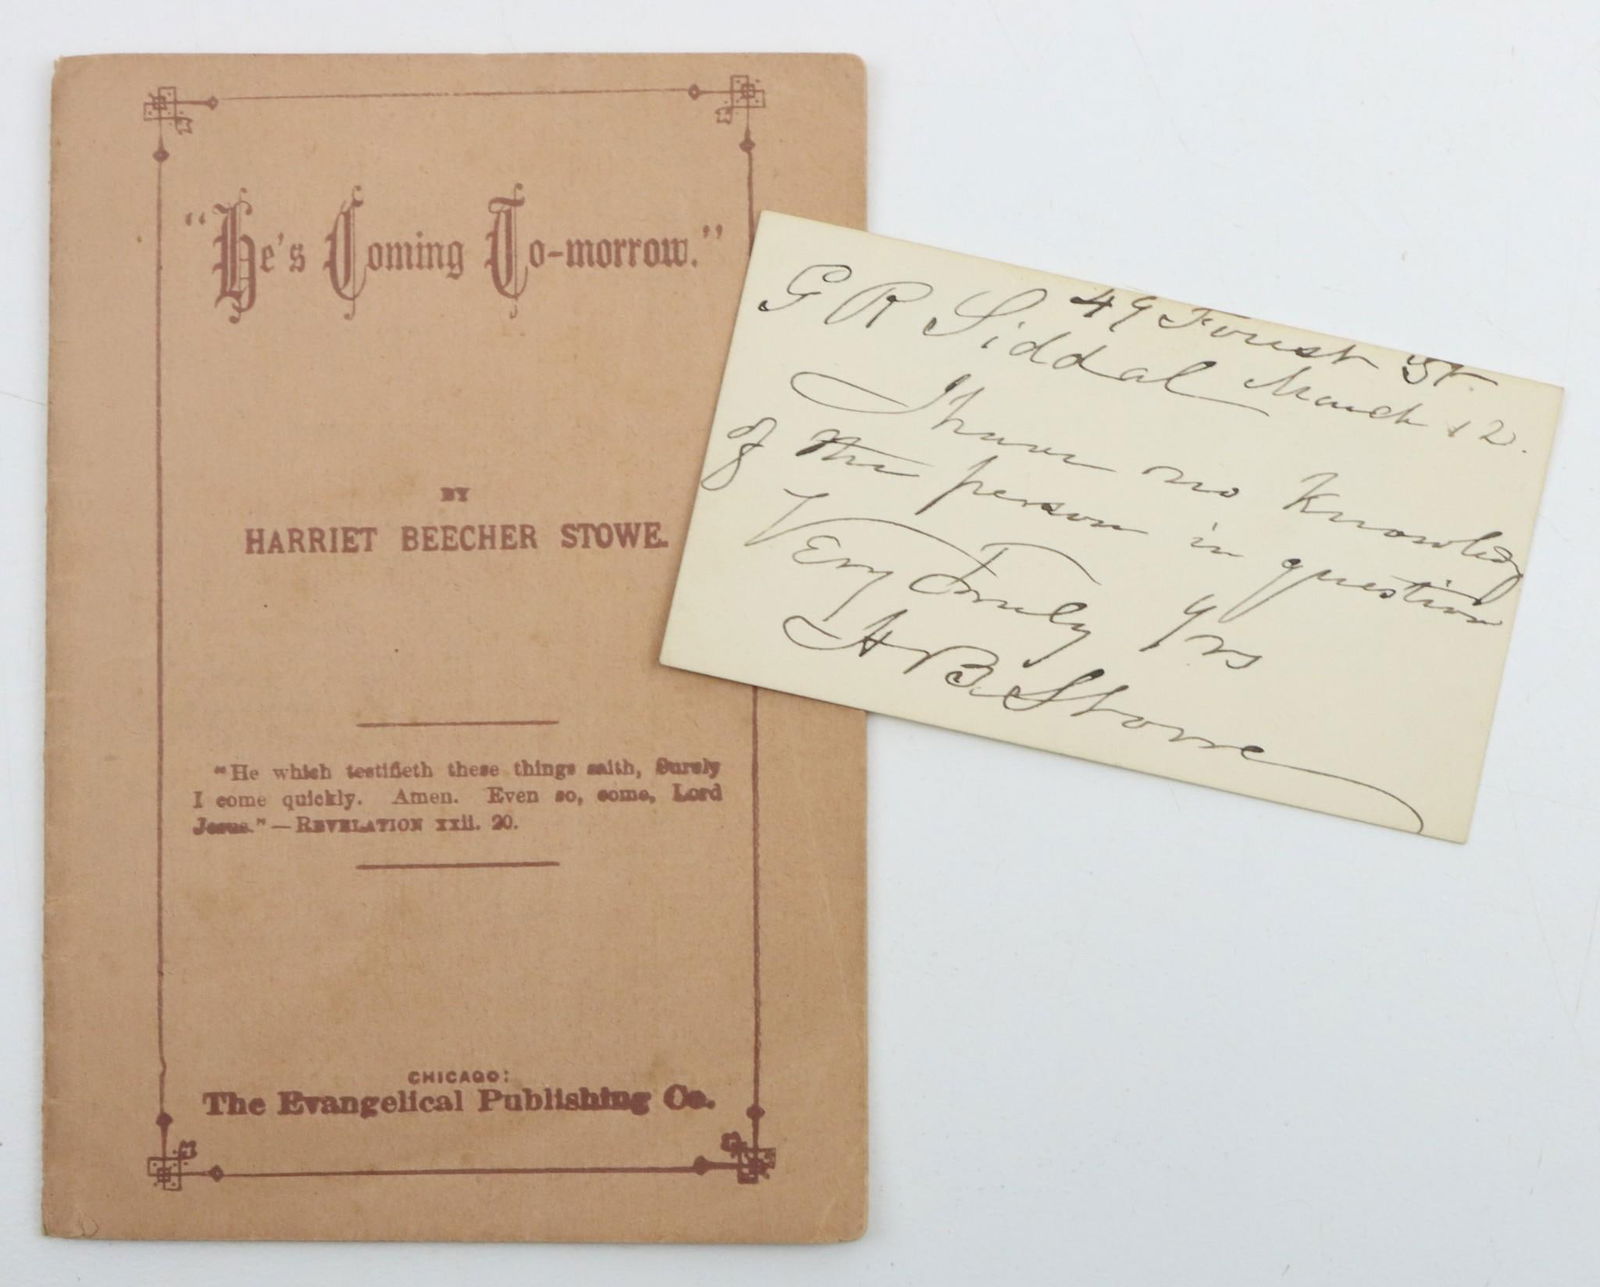 "He's Coming To-morrow."
BY
HARRIET BEECHER STOWE.
"He which testifieth these things saith, Surely
I come quickly. Amen. Even so, come, Lord
Jesus."—REVELATION xxii. 20.
CHICAGO:
The Evangelical Publishing Co.
49 Forest St.
G R Siddal March 12.
I have no knowledg
of the person in question
Very Truly Yrs
H B Stowe